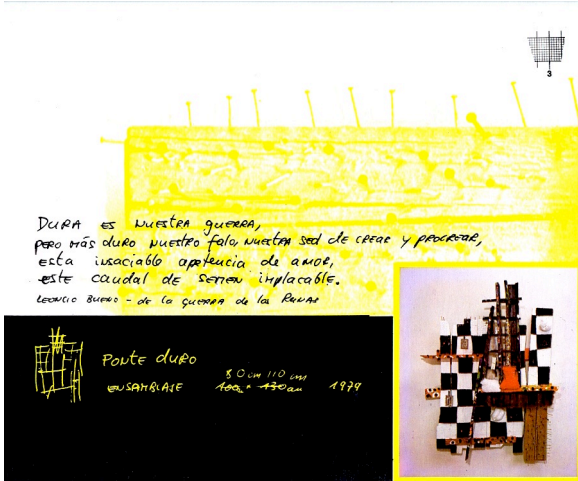 3
DURA ES NUESTRA GUERRA,
PERO MÁS DURO NUESTRO FALO, NUESTRA SED DE CREAR Y PROCREAR,
ESTA INSACIABLE APETENCIA DE AMOR,
ESTE CAUDAL DE SEMEN IMPLACABLE.
LEONCIO BUENO - DE LA GUERRA DE LOS RUNAS
PONTE DURO
80 cm 110 cm
ENSAMBLAJE 100 x 130 cm 1979